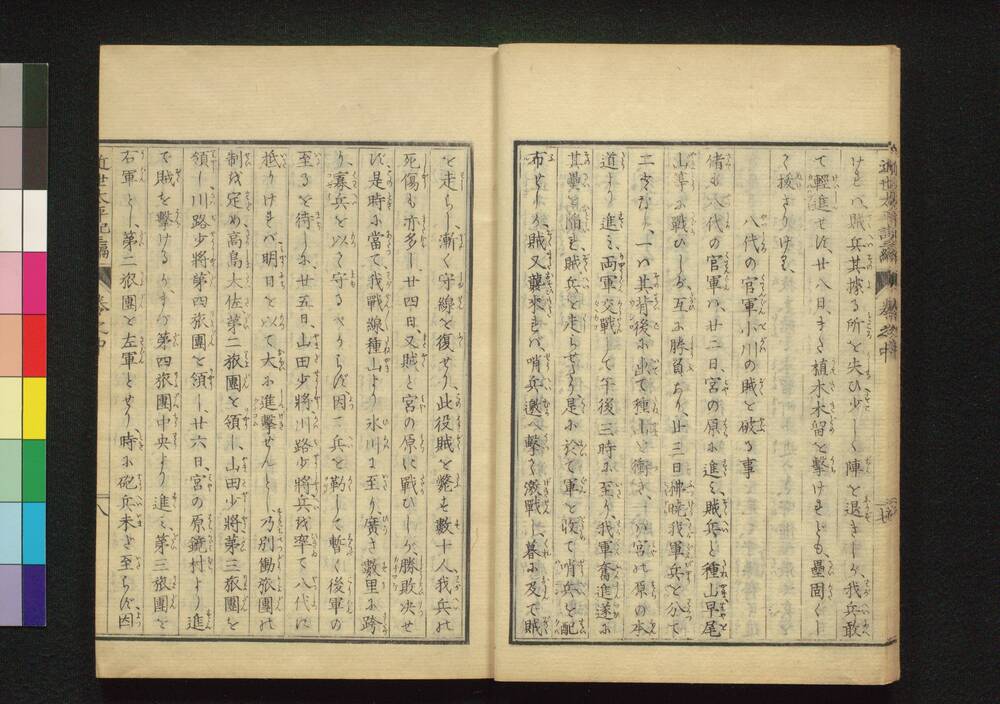 けれバ、賊兵其據る所を失ひ少しく陣を退きしが、我兵敢
て輕進せず、廿八日、また植木木留を擊けれども、壘固くし
て拔ざりける、
八代の官軍小川の賊を破る事
偖も八代の官軍ハ、廿二日、宮の原に進ミ、賊兵と種山早尾
山等に戰ひしが、互に勝負あり、廿三日拂曉我軍兵を分て
二となし、一ハ其背後に出て種山を衝き、一ハ宮の原の本
道より進ミ、両軍交戰して午後三時に至り、我軍奮進遂に
其壘を陷れ、賊兵を走らせたり、是に於て軍を收て哨兵を配
布せしが、賊又襲來れバ、哨兵邀へ擊て激戰し、暮に及で賊
を走らし、漸く守線を復せり、此役賊を斃す數十人、我兵の
死傷も亦多し、廿四日、又賊と宮の原に戰ひしが、勝敗決せ
ず、是時に當て我戰線種山より氷川に至り、廣さ數里に跨
り、寡兵を以て守るべからず、因て兵を勒して暫く後軍の
至るを待しに、廿五日、山田少將川路少將兵を率て八代に
抵りけれバ、明日を以て大に進擊せんとし、乃別働旅團の
制を定め、高島大佐第二旅團を領し、山田少將第三旅團を
領し、川路少將第四旅團を領し、廿六日、宮の原鏡村より進
で賊を擊けるが、第四旅團中央より進ミ、第三旅團を
右軍とし、第二旅團を左軍とせり、時に砲兵未だ至らず、因
近世太平記